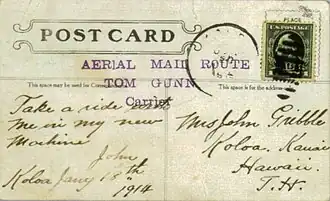 PLACE
U.S. POSTAGE
POST CARD
AERIAL MAIL ROUTE
TOM GUNN
Carrier
This space may be used for
This space is for the address
Take a ride with
me in my new
Machine
John
Koloa Jany 18th
1914
Mrs John Gribble
Koloa. Kauai
Hawaii.
T.H.